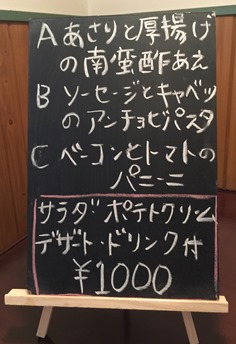 A あさりと厚揚げ
の南蛮酢あえ
B ソーセージとキャベツ
のアンチョビパスタ
C ベーコンとトマトの
パニーニ
サラダ ポテトクリーム
デザート・ドリンク付
¥1000